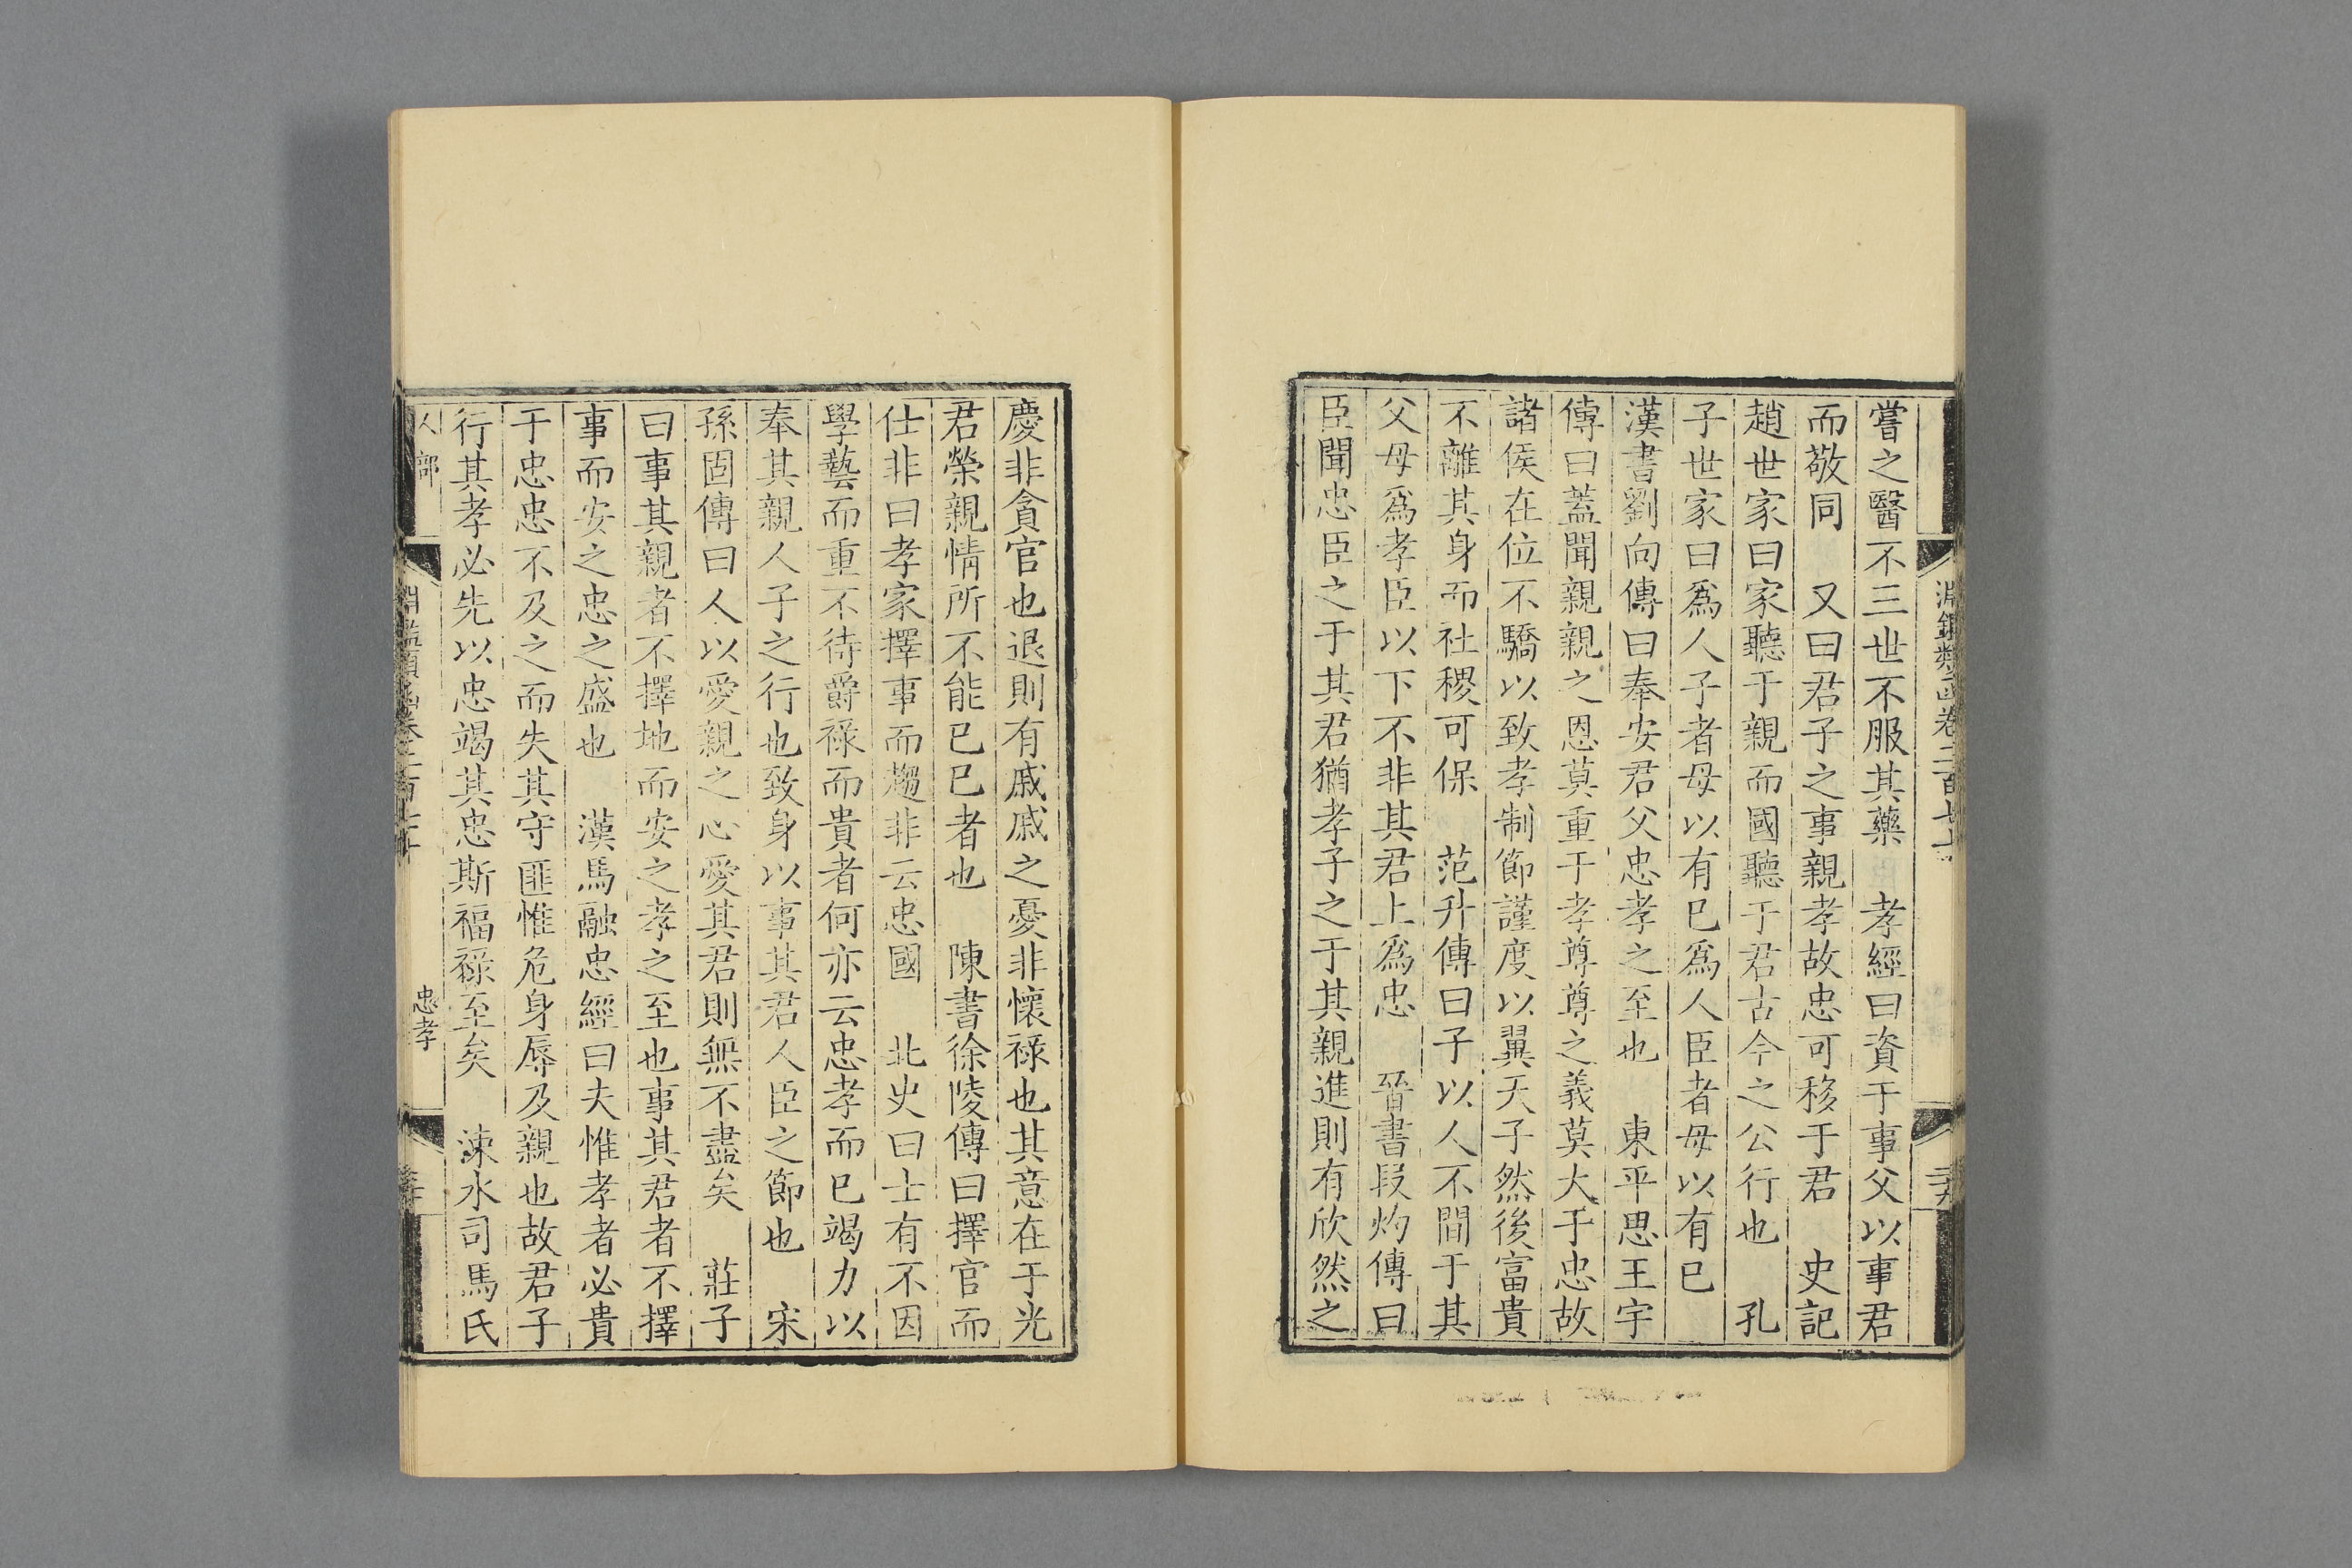 嘗之醫不三世不服其藥　孝經曰資于事父以事君
而敬同　又曰君子之事親孝故忠可移于君　史記
趙世家曰家聽于親而國聽于君古今之公行也　孔
子世家曰爲人子者毋以有已爲人臣者毋以有已
漢書劉向傳曰奉安君父忠孝之至也　東平思王宇
傳曰蓋聞親親之恩莫重于孝尊尊之義莫大于忠故
諸侯在位不驕以致孝制節謹度以翼天子然後富貴
不離其身而社稷可保　范升傳曰子以人不間于其
父母爲孝臣以下不非其君上爲忠　晉書段灼傳曰
臣聞忠臣之于其君猶孝子之于其親進則有欣然之
慶非貪官也退則有戚戚之憂非懷祿也其意在于光
君榮親情所不能已已者也　陳書徐陵傳曰擇官而
仕非曰孝家擇事而趨非云忠國　北史曰士有不因
學藝而重不待爵祿而貴者何亦云忠孝而已竭力以
奉其親人子之行也致身以事其君人臣之節也　宋
孫固傳曰人以愛親之心愛其君則無不盡矣　莊子
曰事其親者不擇地而安之孝之至也事其君者不擇
事而安之忠之盛也　漢馬融忠經曰夫惟孝者必貴
于忠忠不及之而失其守匪惟危身辱及親也故君子
行其孝必先以忠竭其忠斯福祿至矣　涑水司馬氏
人部　忠孝